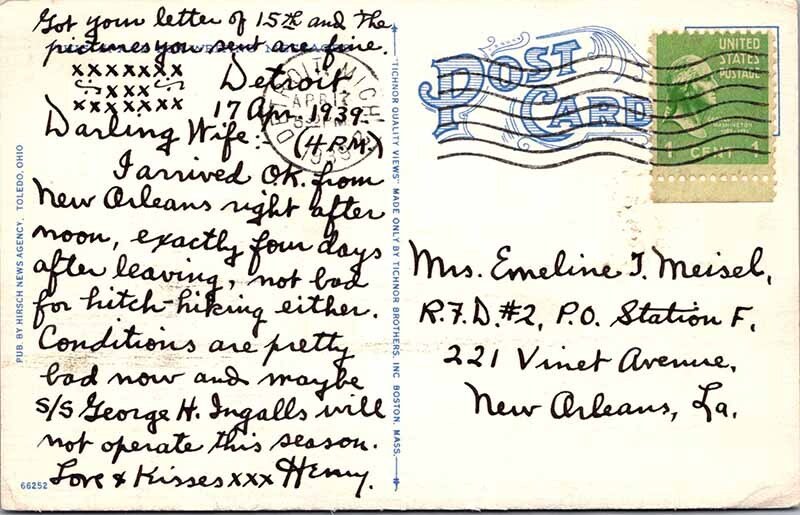 Got your letter of 15th and the
pictures you sent are fine.
xxxxxxx
xxx
xxxxxxx
Detroit
17 Apr. 1939.
Darling Wife: (4 P.M.)
I arrived O.K. from
New Orleans right after
noon, exactly four days
after leaving, not bad
for hitch-hiking either.
Conditions are pretty
bad now and maybe
S/S George H. Ingalls will
not operate this season.
Love & Kisses xxx Henry.
66252
PUB. BY HIRSCH NEWS AGENCY, TOLEDO, OHIO
"TICHNOR QUALITY VIEWS" MADE ONLY BY TICHNOR BROTHERS, INC BOSTON, MASS.
DETROIT, MICH
APR 17
1939
POST
CARD
UNITED
STATES
POSTAGE
1 CENT 1
Mrs. Emeline T. Meisel,
R.F.D. #2, P.O. Station F,
221 Vinet Avenue,
New Orleans, La.